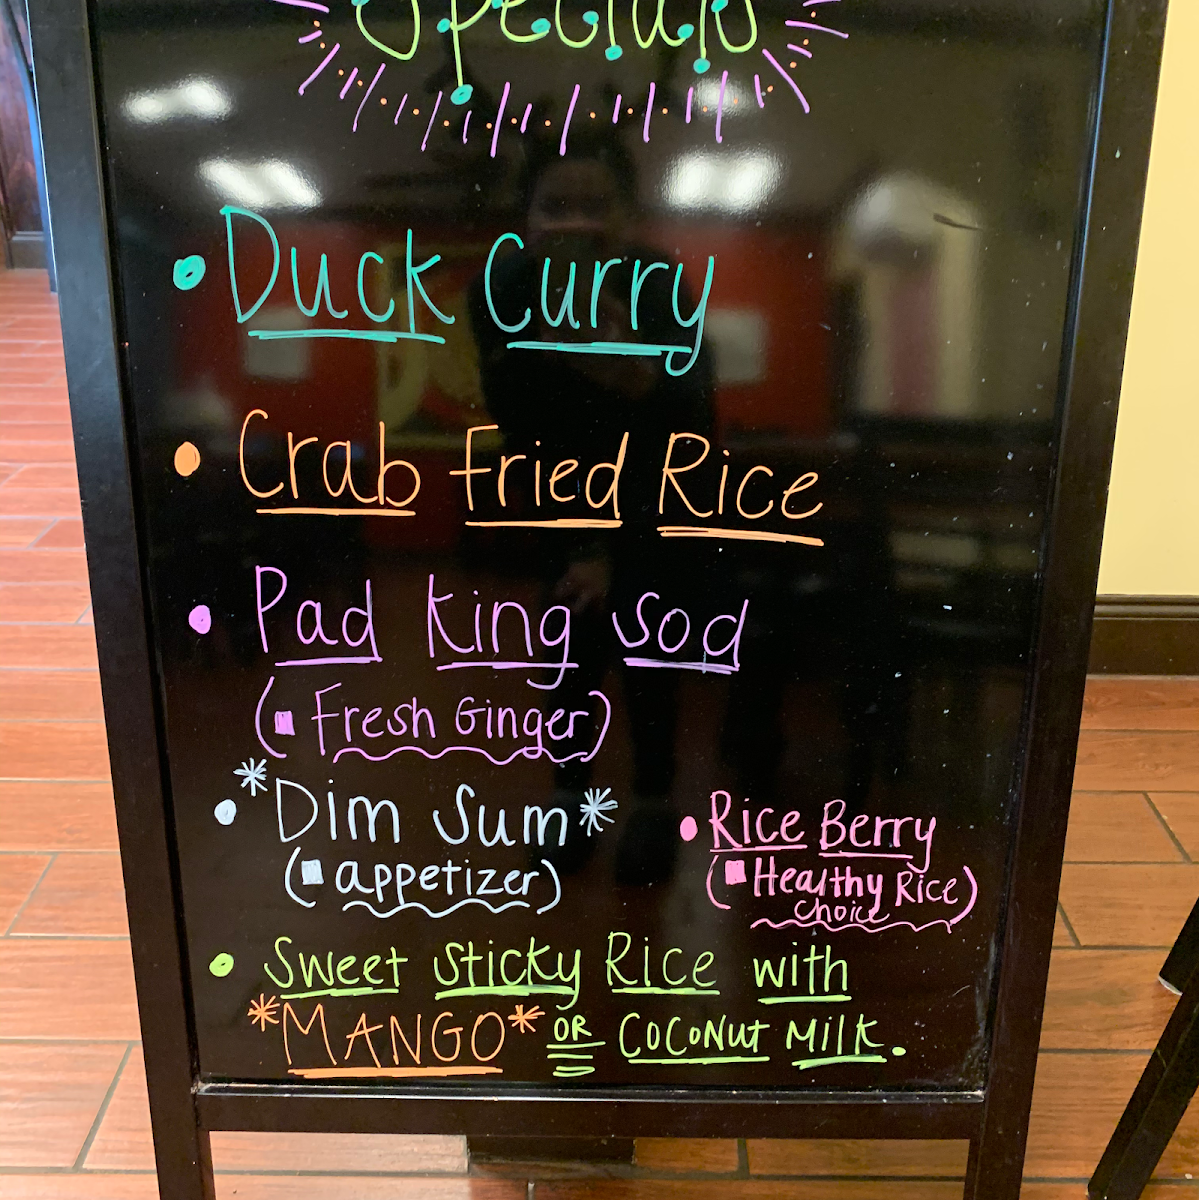 Specials
• Duck Curry
• Crab Fried Rice
• Pad King Sod
(▪ Fresh Ginger)
• *Dim Sum*
(▪ appetizer)
• Rice Berry
(▪ Healthy Rice)
choice
• Sweet Sticky Rice with
*MANGO* OR COCONUT MILK.